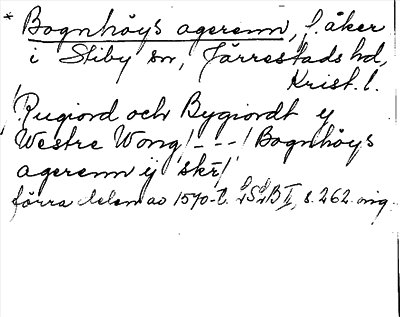 * Bognhöys agerenn, f. åker
i Stiby sn, Järrestads hd,
Krist. l.
/Rugiord och Bygiordt y
Westre Wong/---/Bognhöys
agerenn ij skr/
förra delen av 1570-t. LSB II, s. 262 orig.